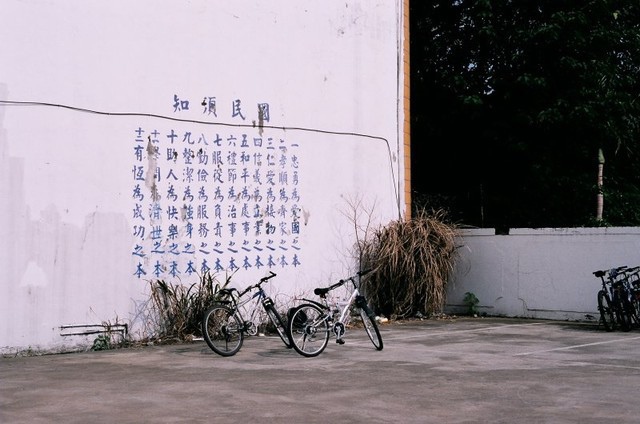 國民須知
一忠勇為愛國之本
二孝順為齊家之本
三仁愛為接物之本
四信義為立業之本
五和平為處事之本
六禮節為治事之本
七服從為負責之本
八勤儉為服務之本
九整潔為強身之本
十助人為快樂之本
十一學問為濟世之本
十二有恆為成功之本